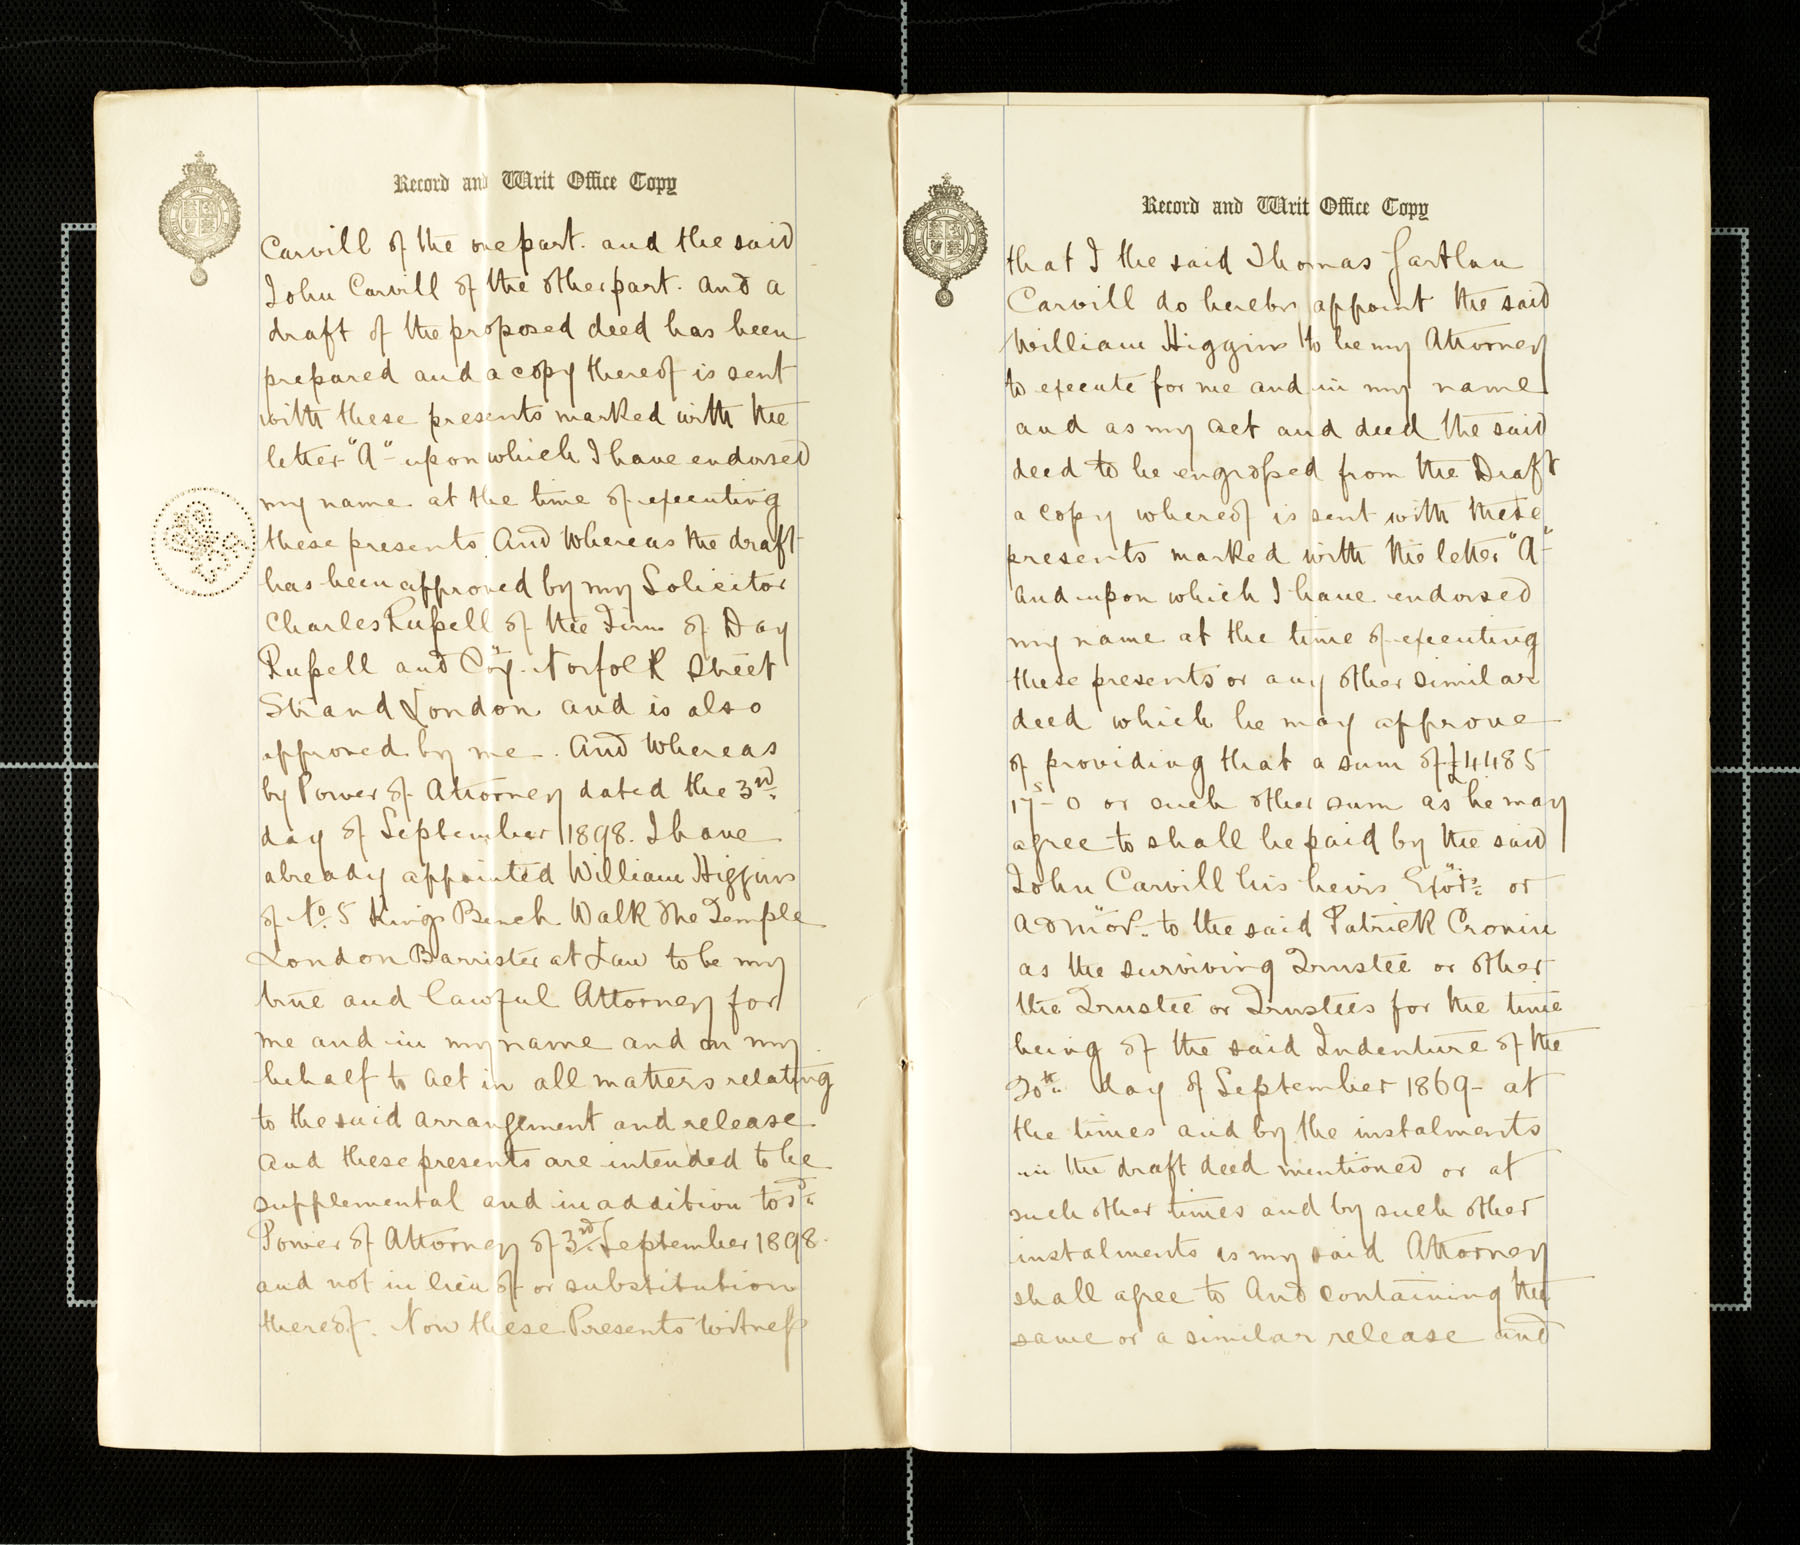 Record and Writ Office Copy
Carvill of the one part. and the said
John Carvill of the other part. And a
draft of the proposed deed has been
prepared and a copy thereof is sent
with these presents marked with the
letter "A" upon which I have endorsed
my name at the time of executing
these presents. And Whereas the draft
has been approved by my Solicitor
Charles Russell of the Firm of Day
Russell and Coy. Norfolk Street
Strand London and is also
approved by me. And Whereas
by Power of Attorney dated the 3rd
day of September 1898. I have
already appointed William Higgins
of No. 5 Kings Bench Walk The Temple
London Barrister at Law to be my
true and lawful Attorney for
me and in my name and on my
behalf to act in all matters relating
to the said arrangement and release
and these presents are intended to be
supplemental and in addition to sd.
Power of Attorney of 3rd September 1898.
and not in lieu of or substitution
thereof. Now these Presents Witness
Record and Writ Office Copy
that I the said Thomas Gartlan
Carvill do hereby appoint the said
William Higgins to be my Attorney
to execute for me and in my name
and as my act and deed the said
deed to be engrossed from the Draft
a copy whereof is sent with these
presents marked with the letter "A"
and upon which I have endorsed
my name at the time of executing
these presents or any other similar
deed which he may approve
of providing that a sum of £4485
17s - 0 or such other sum as he may
agree to shall be paid by the said
John Carvill his heirs Exors. or
Admors. to the said Patrick Cronin
as the surviving Trustee or other
the Trustee or Trustees for the time
being of the said Indenture of the
20th day of September 1869 - at
the times and by the instalments
in the draft deed mentioned or at
such other times and by such other
instalments as my said Attorney
shall agree to And containing the
same or a similar release and